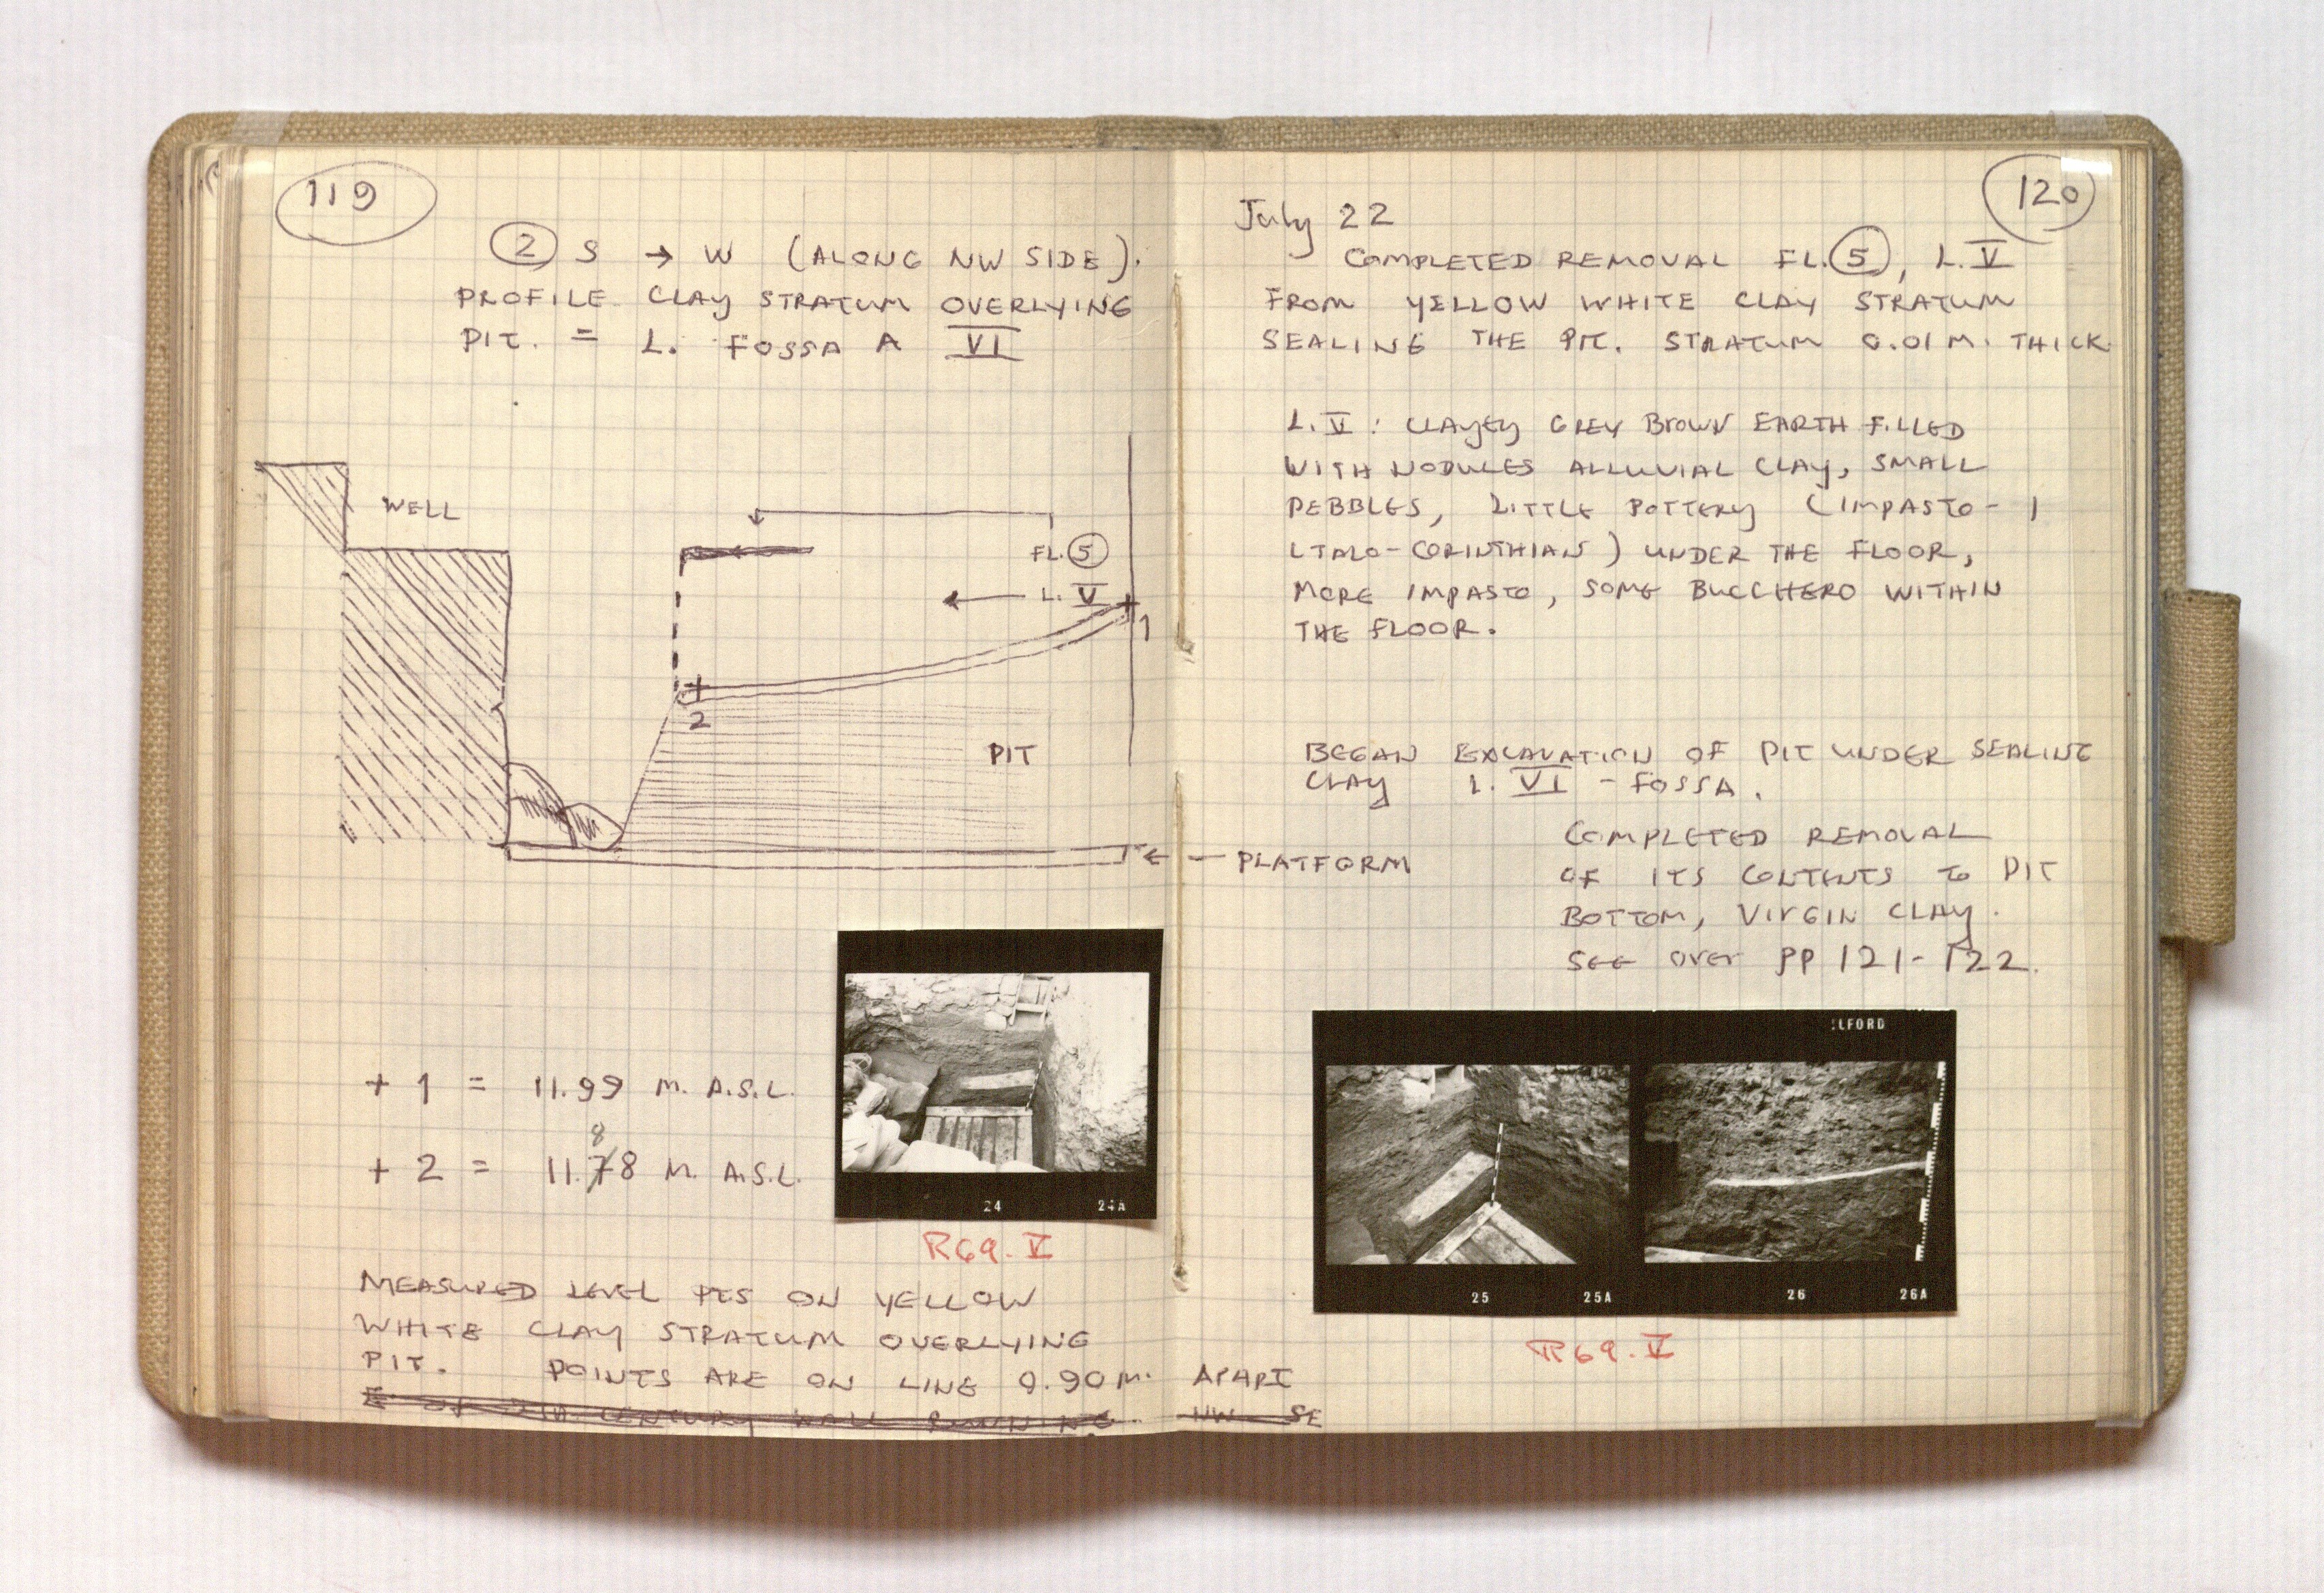 119
② S → W (ALONG NW SIDE).
PROFILE CLAY STRATUM OVERLYING
PIT. = L. FOSSA A VI
WELL
FL. ⑤
L. V
1
2
PIT
← — PLATFORM
+ 1 = 11.99 M. A.S.L.
8
+ 2 = 11.78 M. A.S.L.
24 24A
R69. V
MEASURED LEVEL PTS ON YELLOW
WHITE CLAY STRATUM OVERLYING
PIT. POINTS ARE ON LINE 0.90 M. APART
CENTURY WALL RUNNING NW SE
120
July 22
COMPLETED REMOVAL FL. ⑤, L. V
FROM YELLOW WHITE CLAY STRATUM
SEALING THE PIT. STRATUM 0.01 M. THICK
L. V : CLAYEY GREY BROWN EARTH FILLED
WITH NODULES ALLUVIAL CLAY, SMALL
PEBBLES, LITTLE POTTERY (IMPASTO - 1
ITALO-CORINTHIAN) UNDER THE FLOOR,
MORE IMPASTO, SOME BUCCHERO WITHIN
THE FLOOR.
BEGAN EXCAVATION OF PIT UNDER SEALING
CLAY L. VI - FOSSA.
COMPLETED REMOVAL
OF ITS CONTENTS TO PIT
BOTTOM, VIRGIN CLAY.
SEE OVER PP 121-122.
ILFORD
25 25A 26 26A
R69. V